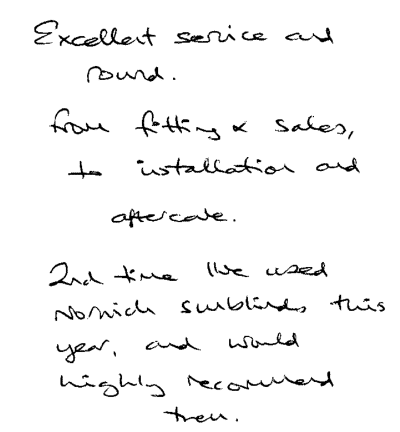 Excellent service all
round.
from fitting & sales,
to installation and
aftercare.
2nd time I've used
Norwich sunblinds this
year, and would
highly recommend
them.